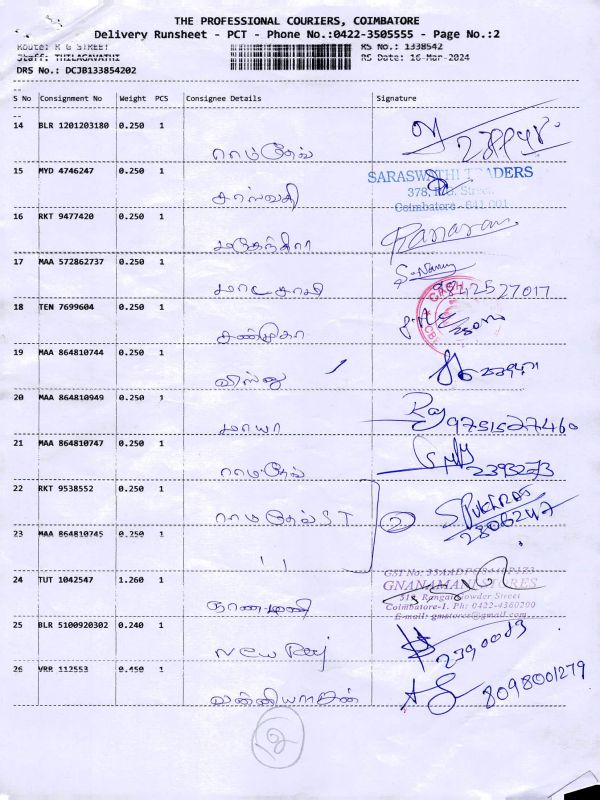 THE PROFESSIONAL COURIERS, COIMBATORE
Delivery Runsheet - PCT - Phone No.:0422-3505555 - Page No.:2
Route: R G STREET RS No.: 1338542
Staff: THILAGAVATHI RS Date: 16-Mar-2024
DRS No.: DCJB133854202
S No Consignment No Weight PCS Consignee Details Signature
14 BLR 1201203180 0.250 1
ராமதேவ்
15 MYD 4746247 0.250 1 SARASWATHI TRADERS
சரஸ்வதி Coimbatore - 641 001
16 RKT 9477420 0.250 1
மகேந்திரா
17 MAA 572862737 0.250 1
9842527017
18 TEN 7699604 0.250 1
சண்முகா
19 MAA 864810744 0.250 1
விஸ்ணு
20 MAA 864810949 0.250 1 Raj
மாயா 9751527460
21 MAA 864810747 0.250 1
ராமதேவ் 2393273
22 RKT 9538552 0.250 1
ராமதேவ் S T 2 2806247
23 MAA 864810745 0.250 1
"
24 TUT 1042547 1.260 1 GNANAMANI STORES
ஞானமணி Rangai Gowder Street
Coimbatore-1. Ph: 0422-4360200
E-mail: gmstores@gmail.com
25 BLR 5100920302 0.240 1
New Raj 2390083
26 VRR 112553 0.450 1
வன்னியராஜன் 8098001279